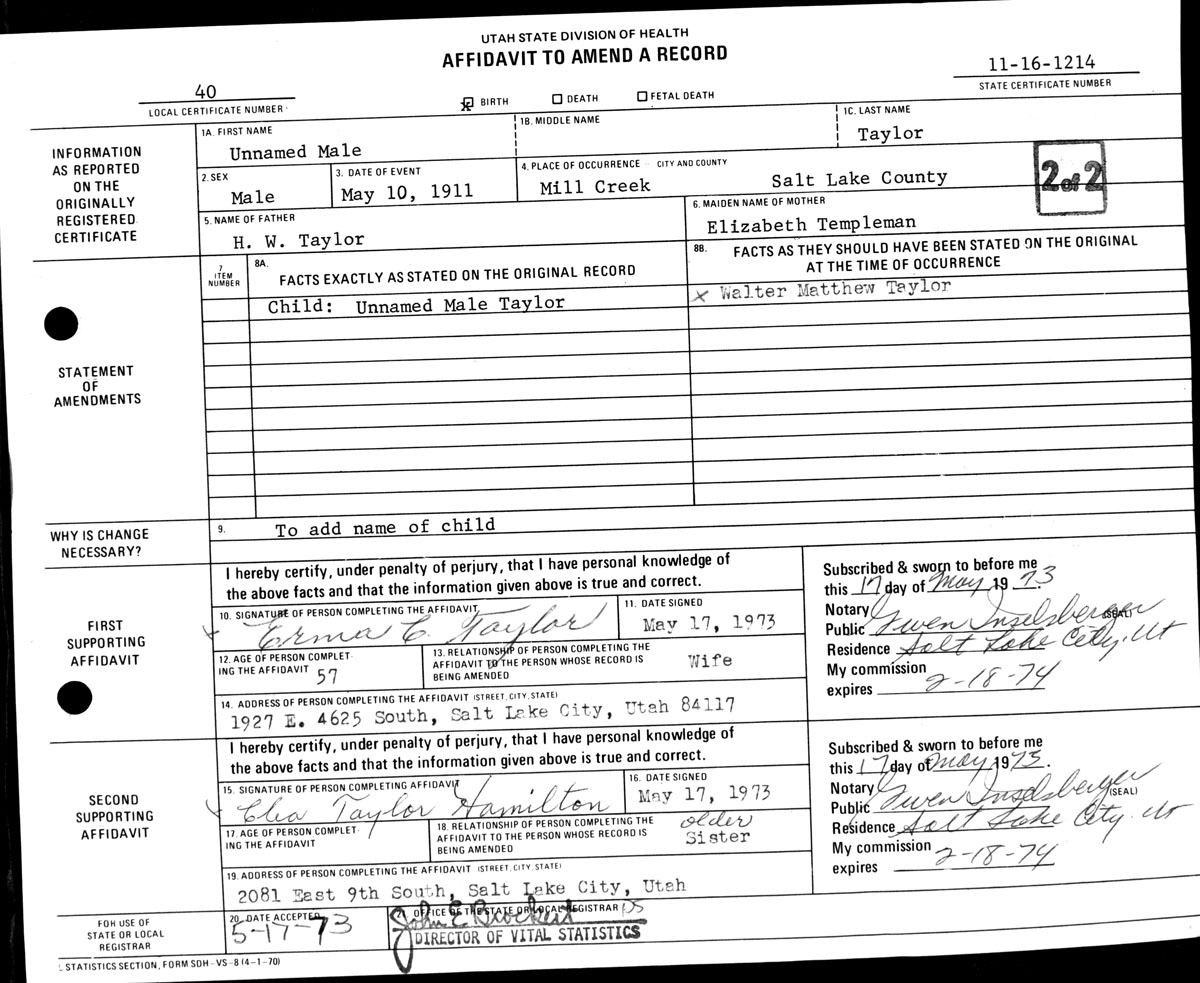 UTAH STATE DIVISION OF HEALTH
AFFIDAVIT TO AMEND A RECORD
40
LOCAL CERTIFICATE NUMBER
☒ BIRTH ☐ DEATH ☐ FETAL DEATH
11-16-1214
STATE CERTIFICATE NUMBER
INFORMATION
AS REPORTED
ON THE
ORIGINALLY
REGISTERED
CERTIFICATE
1A. FIRST NAME
Unnamed Male
1B. MIDDLE NAME
1C. LAST NAME
Taylor
2. SEX
Male
3. DATE OF EVENT
May 10, 1911
4. PLACE OF OCCURRENCE CITY AND COUNTY
Mill Creek Salt Lake County
2 of 2
5. NAME OF FATHER
H. W. Taylor
6. MAIDEN NAME OF MOTHER
Elizabeth Templeman
STATEMENT
OF
AMENDMENTS
7
ITEM
NUMBER
8A. FACTS EXACTLY AS STATED ON THE ORIGINAL RECORD
8B. FACTS AS THEY SHOULD HAVE BEEN STATED ON THE ORIGINAL
AT THE TIME OF OCCURRENCE
Child: Unnamed Male Taylor
x Walter Matthew Taylor
WHY IS CHANGE
NECESSARY?
9. To add name of child
FIRST
SUPPORTING
AFFIDAVIT
I hereby certify, under penalty of perjury, that I have personal knowledge of
the above facts and that the information given above is true and correct.
10. SIGNATURE OF PERSON COMPLETING THE AFFIDAVIT
Erma C. Taylor
11. DATE SIGNED
May 17, 1973
12. AGE OF PERSON COMPLET-
ING THE AFFIDAVIT 57
13. RELATIONSHIP OF PERSON COMPLETING THE
AFFIDAVIT TO THE PERSON WHOSE RECORD IS
BEING AMENDED
Wife
14. ADDRESS OF PERSON COMPLETING THE AFFIDAVIT (STREET, CITY, STATE)
1927 E. 4625 South, Salt Lake City, Utah 84117
Subscribed & sworn to before me
this 17 day of May 1973.
Notary
Public Gwen Inselsberger (SEAL)
Residence Salt Lake City, Ut
My commission
expires 2-18-74
SECOND
SUPPORTING
AFFIDAVIT
I hereby certify, under penalty of perjury, that I have personal knowledge of
the above facts and that the information given above is true and correct.
15. SIGNATURE OF PERSON COMPLETING AFFIDAVIT
Taylor Hamilton
16. DATE SIGNED
May 17, 1973
17. AGE OF PERSON COMPLET-
ING THE AFFIDAVIT
18. RELATIONSHIP OF PERSON COMPLETING THE
AFFIDAVIT TO THE PERSON WHOSE RECORD IS
BEING AMENDED
older
Sister
19. ADDRESS OF PERSON COMPLETING THE AFFIDAVIT (STREET, CITY, STATE)
2081 East 9th South, Salt Lake City, Utah
Subscribed & sworn to before me
this 17 day of May 1973.
Notary
Public Gwen Inselsberger (SEAL)
Residence Salt Lake City, Ut
My commission
expires 2-18-74
FOR USE OF
STATE OR LOCAL
REGISTRAR
20. DATE ACCEPTED
5-17-73
21. OFFICE OF THE STATE OR LOCAL REGISTRAR
John E Brockert
DIRECTOR OF VITAL STATISTICS
STATISTICS SECTION, FORM SDH-VS-8 (4-1-70)